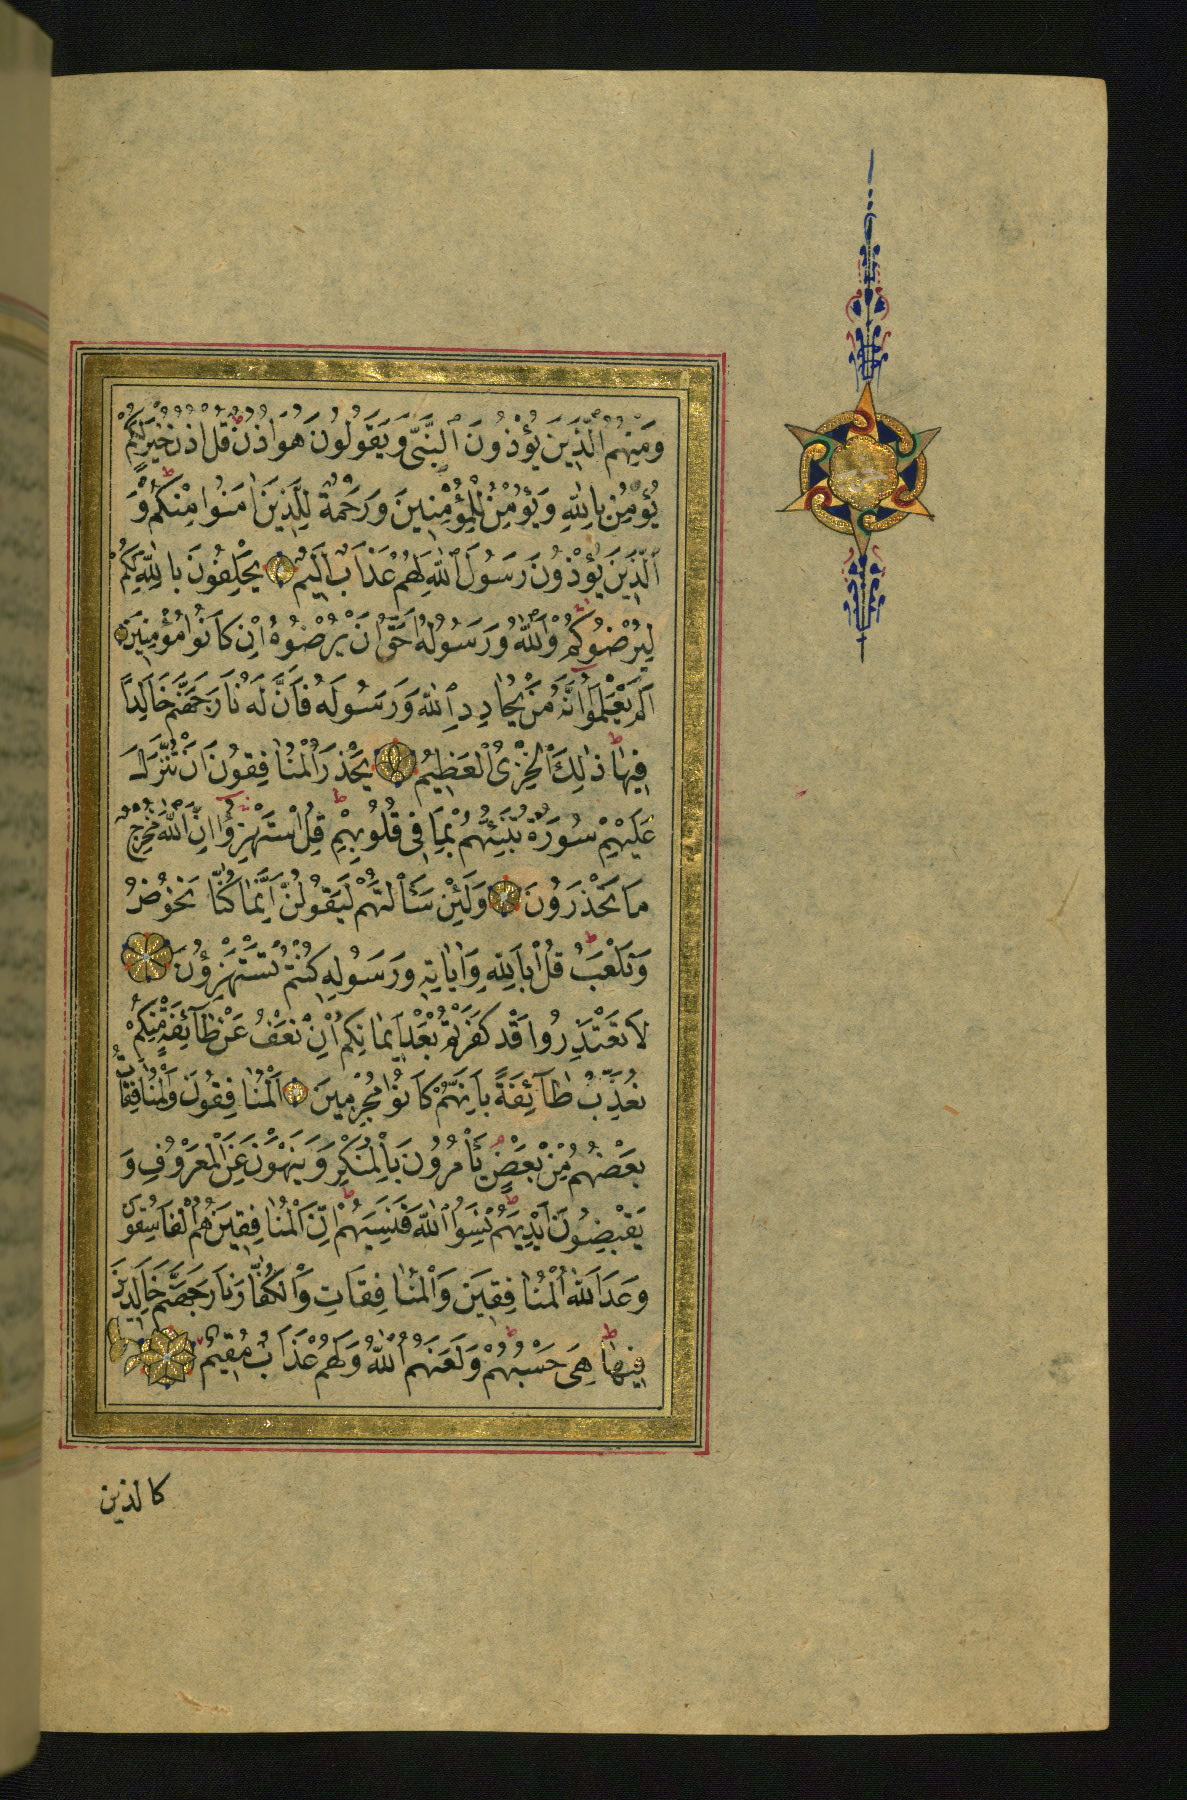 وَمِنْهُمُ الَّذِينَ يُؤْذُونَ النَّبِىَّ وَيَقُولُونَ هُوَ اُذُنٌ قُلْ اُذُنُ خَيْرٍ لَكُمْ
يُؤْمِنُ بِاللّٰهِ وَيُؤْمِنُ لِلْمُؤْمِنِينَ وَرَحْمَةٌ لِلَّذِينَ اٰمَنُوا مِنْكُمْ وَ
الَّذِينَ يُؤْذُونَ رَسُولَ اللّٰهِ لَهُمْ عَذَابٌ اَلِيمٌ يَحْلِفُونَ بِاللّٰهِ لَكُمْ
لِيُرْضُوكُمْ وَاللّٰهُ وَرَسُولُهُ اَحَقُّ اَنْ يُرْضُوهُ اِنْ كَانُوا مُؤْمِنِينَ
اَلَمْ يَعْلَمُوا اَنَّهُ مَنْ يُحَادِدِ اللّٰهَ وَرَسُولَهُ فَاَنَّ لَهُ نَارَ جَهَنَّمَ خَالِدًا
فِيهَا ذٰلِكَ الْخِزْىُ الْعَظِيمُ يَحْذَرُ الْمُنَافِقُونَ اَنْ تُنَزَّلَ
عَلَيْهِمْ سُورَةٌ تُنَبِّئُهُمْ بِمَا فِى قُلُوبِهِمْ قُلِ اسْتَهْزِؤُا اِنَّ اللّٰهَ مُخْرِجٌ
مَا تَحْذَرُونَ وَلَئِنْ سَاَلْتَهُمْ لَيَقُولُنَّ اِنَّمَا كُنَّا نَخُوضُ
وَنَلْعَبُ قُلْ اَبِاللّٰهِ وَاٰيَاتِهِ وَرَسُولِهِ كُنْتُمْ تَسْتَهْزِؤُنَ
لَا تَعْتَذِرُوا قَدْ كَفَرْتُمْ بَعْدَ اِيمَانِكُمْ اِنْ نَعْفُ عَنْ طَآئِفَةٍ مِنْكُمْ
نُعَذِّبْ طَآئِفَةً بِاَنَّهُمْ كَانُوا مُجْرِمِينَ اَلْمُنَافِقُونَ وَالْمُنَافِقَاتُ
بَعْضُهُمْ مِنْ بَعْضٍ يَاْمُرُونَ بِالْمُنْكَرِ وَيَنْهَوْنَ عَنِ الْمَعْرُوفِ وَ
يَقْبِضُونَ اَيْدِيَهُمْ نَسُوا اللّٰهَ فَنَسِيَهُمْ اِنَّ الْمُنَافِقِينَ هُمُ الْفَاسِقُونَ
وَعَدَ اللّٰهُ الْمُنَافِقِينَ وَالْمُنَافِقَاتِ وَالْكُفَّارَ نَارَ جَهَنَّمَ خَالِدِينَ
فِيهَا هِىَ حَسْبُهُمْ وَلَعَنَهُمُ اللّٰهُ وَلَهُمْ عَذَابٌ مُقِيمٌ
كالذين